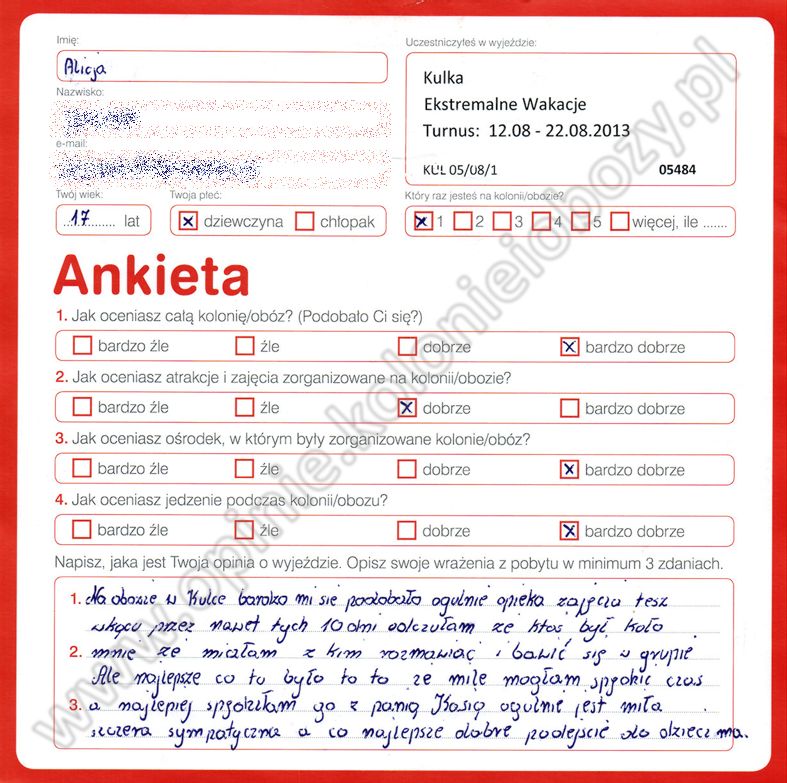 Imię:
Alicja
Uczestniczyłeś w wyjeździe:
Kulka
Ekstremalne Wakacje
Turnus: 12.08 - 22.08.2013
KUL 05/08/1 05484
Nazwisko:
e-mail:
Twój wiek:
17 lat
Twoja płeć:
x dziewczyna chłopak
Który raz jesteś na kolonii/obozie?
x 1 2 3 4 5 więcej, ile .......
Ankieta
1. Jak oceniasz całą kolonię/obóz? (Podobało Ci się?)
bardzo źle źle dobrze x bardzo dobrze
2. Jak oceniasz atrakcje i zajęcia zorganizowane na kolonii/obozie?
bardzo źle źle x dobrze bardzo dobrze
3. Jak oceniasz ośrodek, w którym były zorganizowane kolonie/obóz?
bardzo źle źle dobrze x bardzo dobrze
4. Jak oceniasz jedzenie podczas kolonii/obozu?
bardzo źle źle dobrze x bardzo dobrze
Napisz, jaka jest Twoja opinia o wyjeździe. Opisz swoje wrażenia z pobytu w minimum 3 zdaniach.
1. Na obozie w Kulce bardzo mi sie podobało ogulnie opieka zajęcia tesz
wkącu przez nawet tych 10 dni odczułam ze ktoś był koło
2. mnie ze miałam z kim rozmawiać i bawić się w grupie
Ale najlepsze co to było to to ze mile mogłam spędzic czas
3. a najlepiej spędziłam go z panią Kasią ogulnie jest miła
szczera sympatyczna a co najlepsze dobre podejście do dzieci ma.
www.opinie.kolonieiobozy.pl